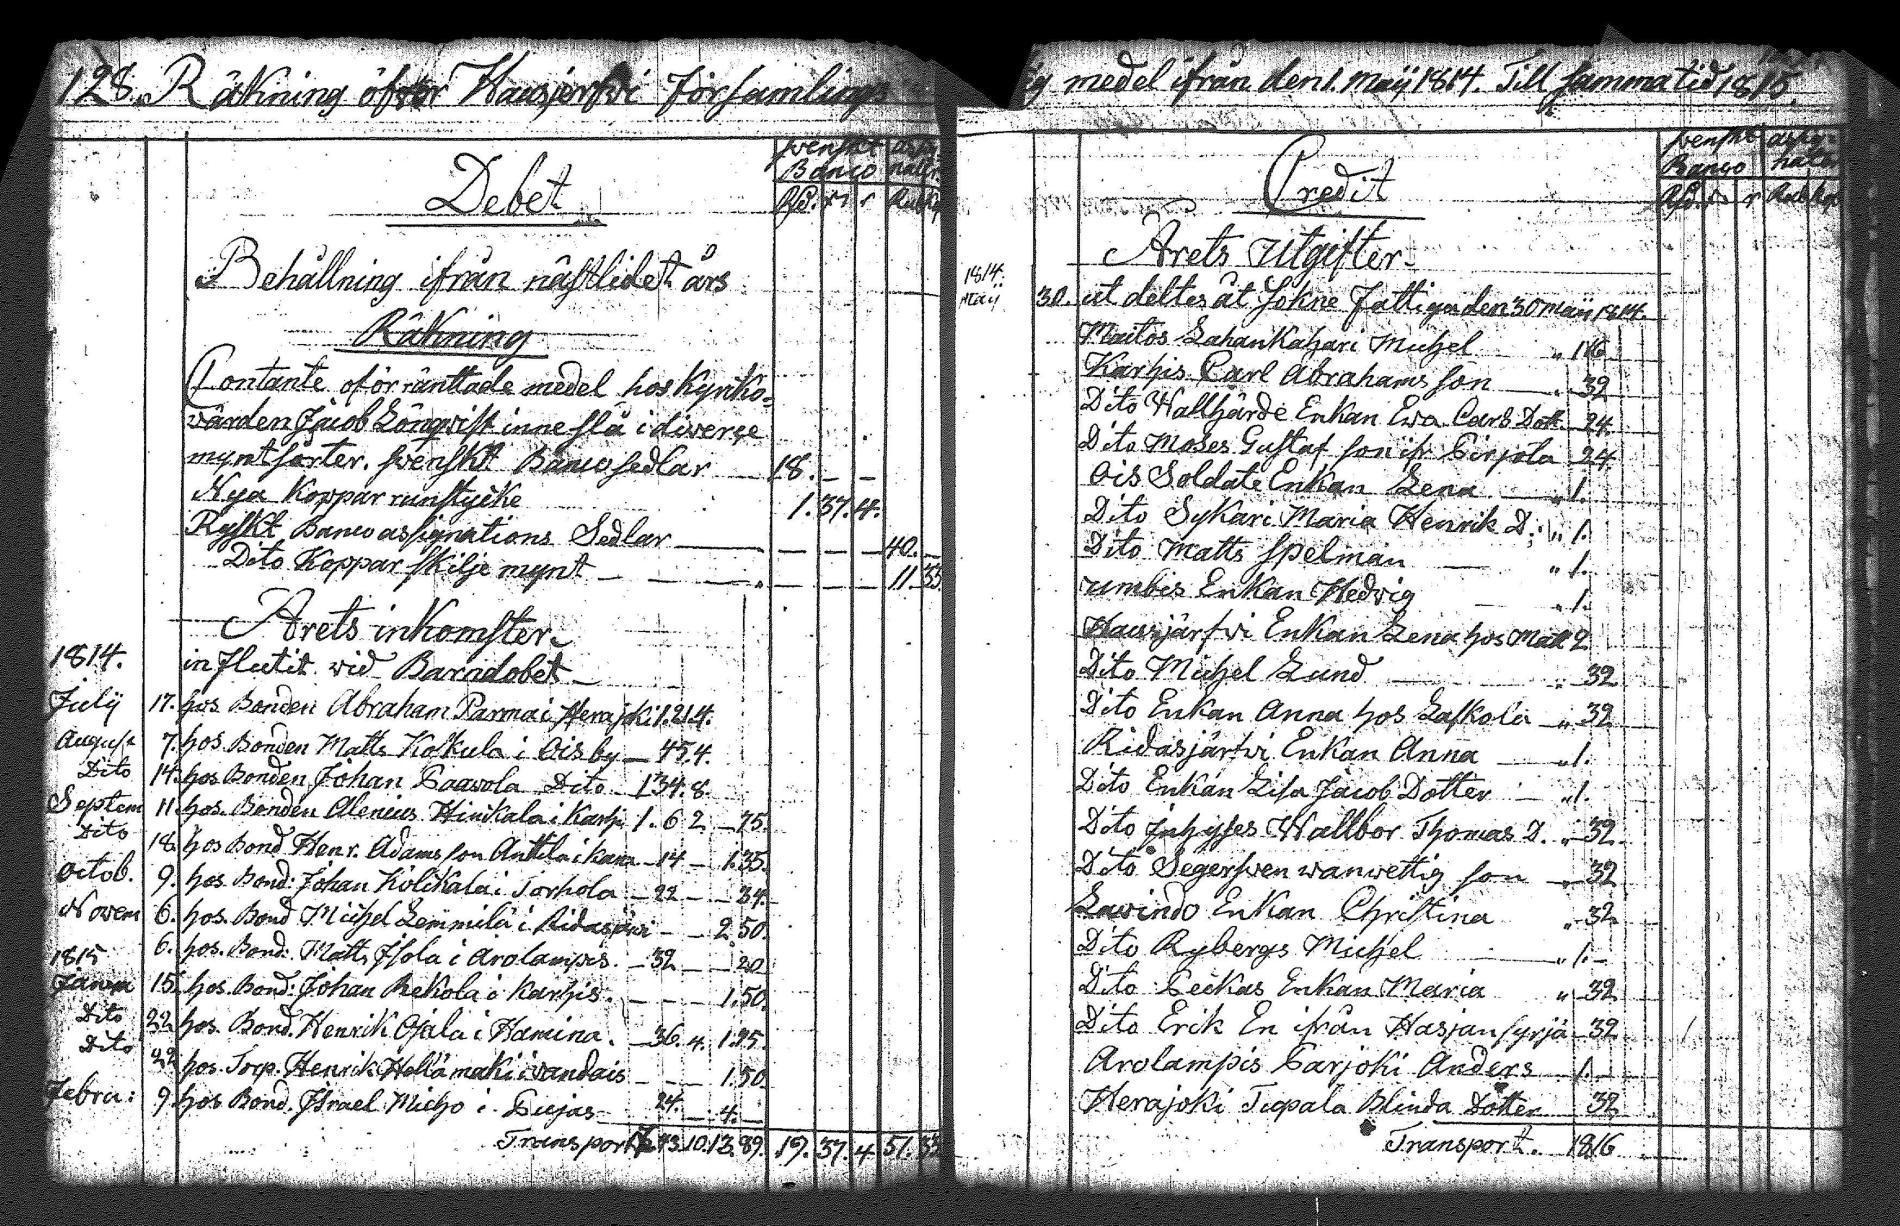 128. Räkning öfver Hausjerfvi Församlings
Svenskt assig-
Banco nater
Debet
Rd. s r Rub Kop
Behållning ifrån nästlidet års
Räkning
Contante oförränttade medel hos Kyrko-
värden Jacob Lönqvist inne stå i diverse
myntsorter. svenskt Banco sedlar 18. - -
Nya Koppar runstycke 1. 37. 4.
Ryskt Banco assignations Sedlar 40. -
Dito Koppar skilje mynt 11. 33
Årets inkomster
1814. influtit vid Barndobet
July 17. hos Bonden Abraham Parma i Herajoki 1. 21. 4.
August 7. hos Bonden Matts Kokula i Ois by 45. 4.
Dito 14. hos Bonden Johan Paavola Dito 1 34. 8.
Septem 11. hos Bonden Alenius Hinkala i Karhi 1. 6 2 75.
Dito 18. hos Bond. Henr. Adamsson Anttila i Kara 14 1. 35.
Octob. 9. hos Bond: Johan Kolikala i Torhola 22 34.
Novem 6. hos Bond Michel Lemmilä i Ridasjärvi 2 50.
6. hos Bond: Matts Isola i Arolampis. 32 20
1815
Janua 15. hos Bond: Johan Rekola i Karhis. 1. 50.
Dito 22 hos Bond. Henrik Ojala i Hamina. 36. 4. 1. 25.
Dito 22 hos Torp. Henrik Hollämäki i vandais 1. 50.
Febru: 9. hos Bond. Israel Micho i Pujas 24. 4.
Transport 7. 43. 10. 13. 89. 19. 37. 4 51. 33
medel ifrån den 1. Maij 1814. Till samma tid 1815.
Svenskt assig-
Banco nater
Credit
Rd. s r Rub Kop
Årets Utgifter
1814.
Maij 30. ut deltes åt Sokne Fattiga den 30 Maij 1814.
Maitos Lahankahari Michel " 1 16.
Karhis Carl Abrahams son 32
Dito Wallhärde Enkan Ewa Carls Dott. 24.
Dito Moses Gustaf son ifr Pirjola 24.
Ois Soldate Enkan Lena " 1.
Dito Sykari Maria Henrik D; " 1.
Dito Matts Spelman " 1.
Umbes Enkan Hedvig " 1.
Hausjärfvi Enkan Lena hos Matt 2
Dito Michel Lund 32
Dito Enkan Anna hos Laskola " 32
Ridasjärfvi Enkan Anna " 1.
Dito Enkan Lisa Jacob Dotter " 1.
Dito Inhyses Wallbor Thomas D. " 32.
Dito Segersven vanvettig son 32
Lavindo Enkan Christina " 32
Dito Rybergs Michel " 1. -
Dito Peckas Enkan Maria " 32
Dito Erik En ifrån Hasjansyrjä 32
Arolampis Parjoki Anders 1. -
Herajoki Tupala Blinda Dotter 32
Transport. 18 16